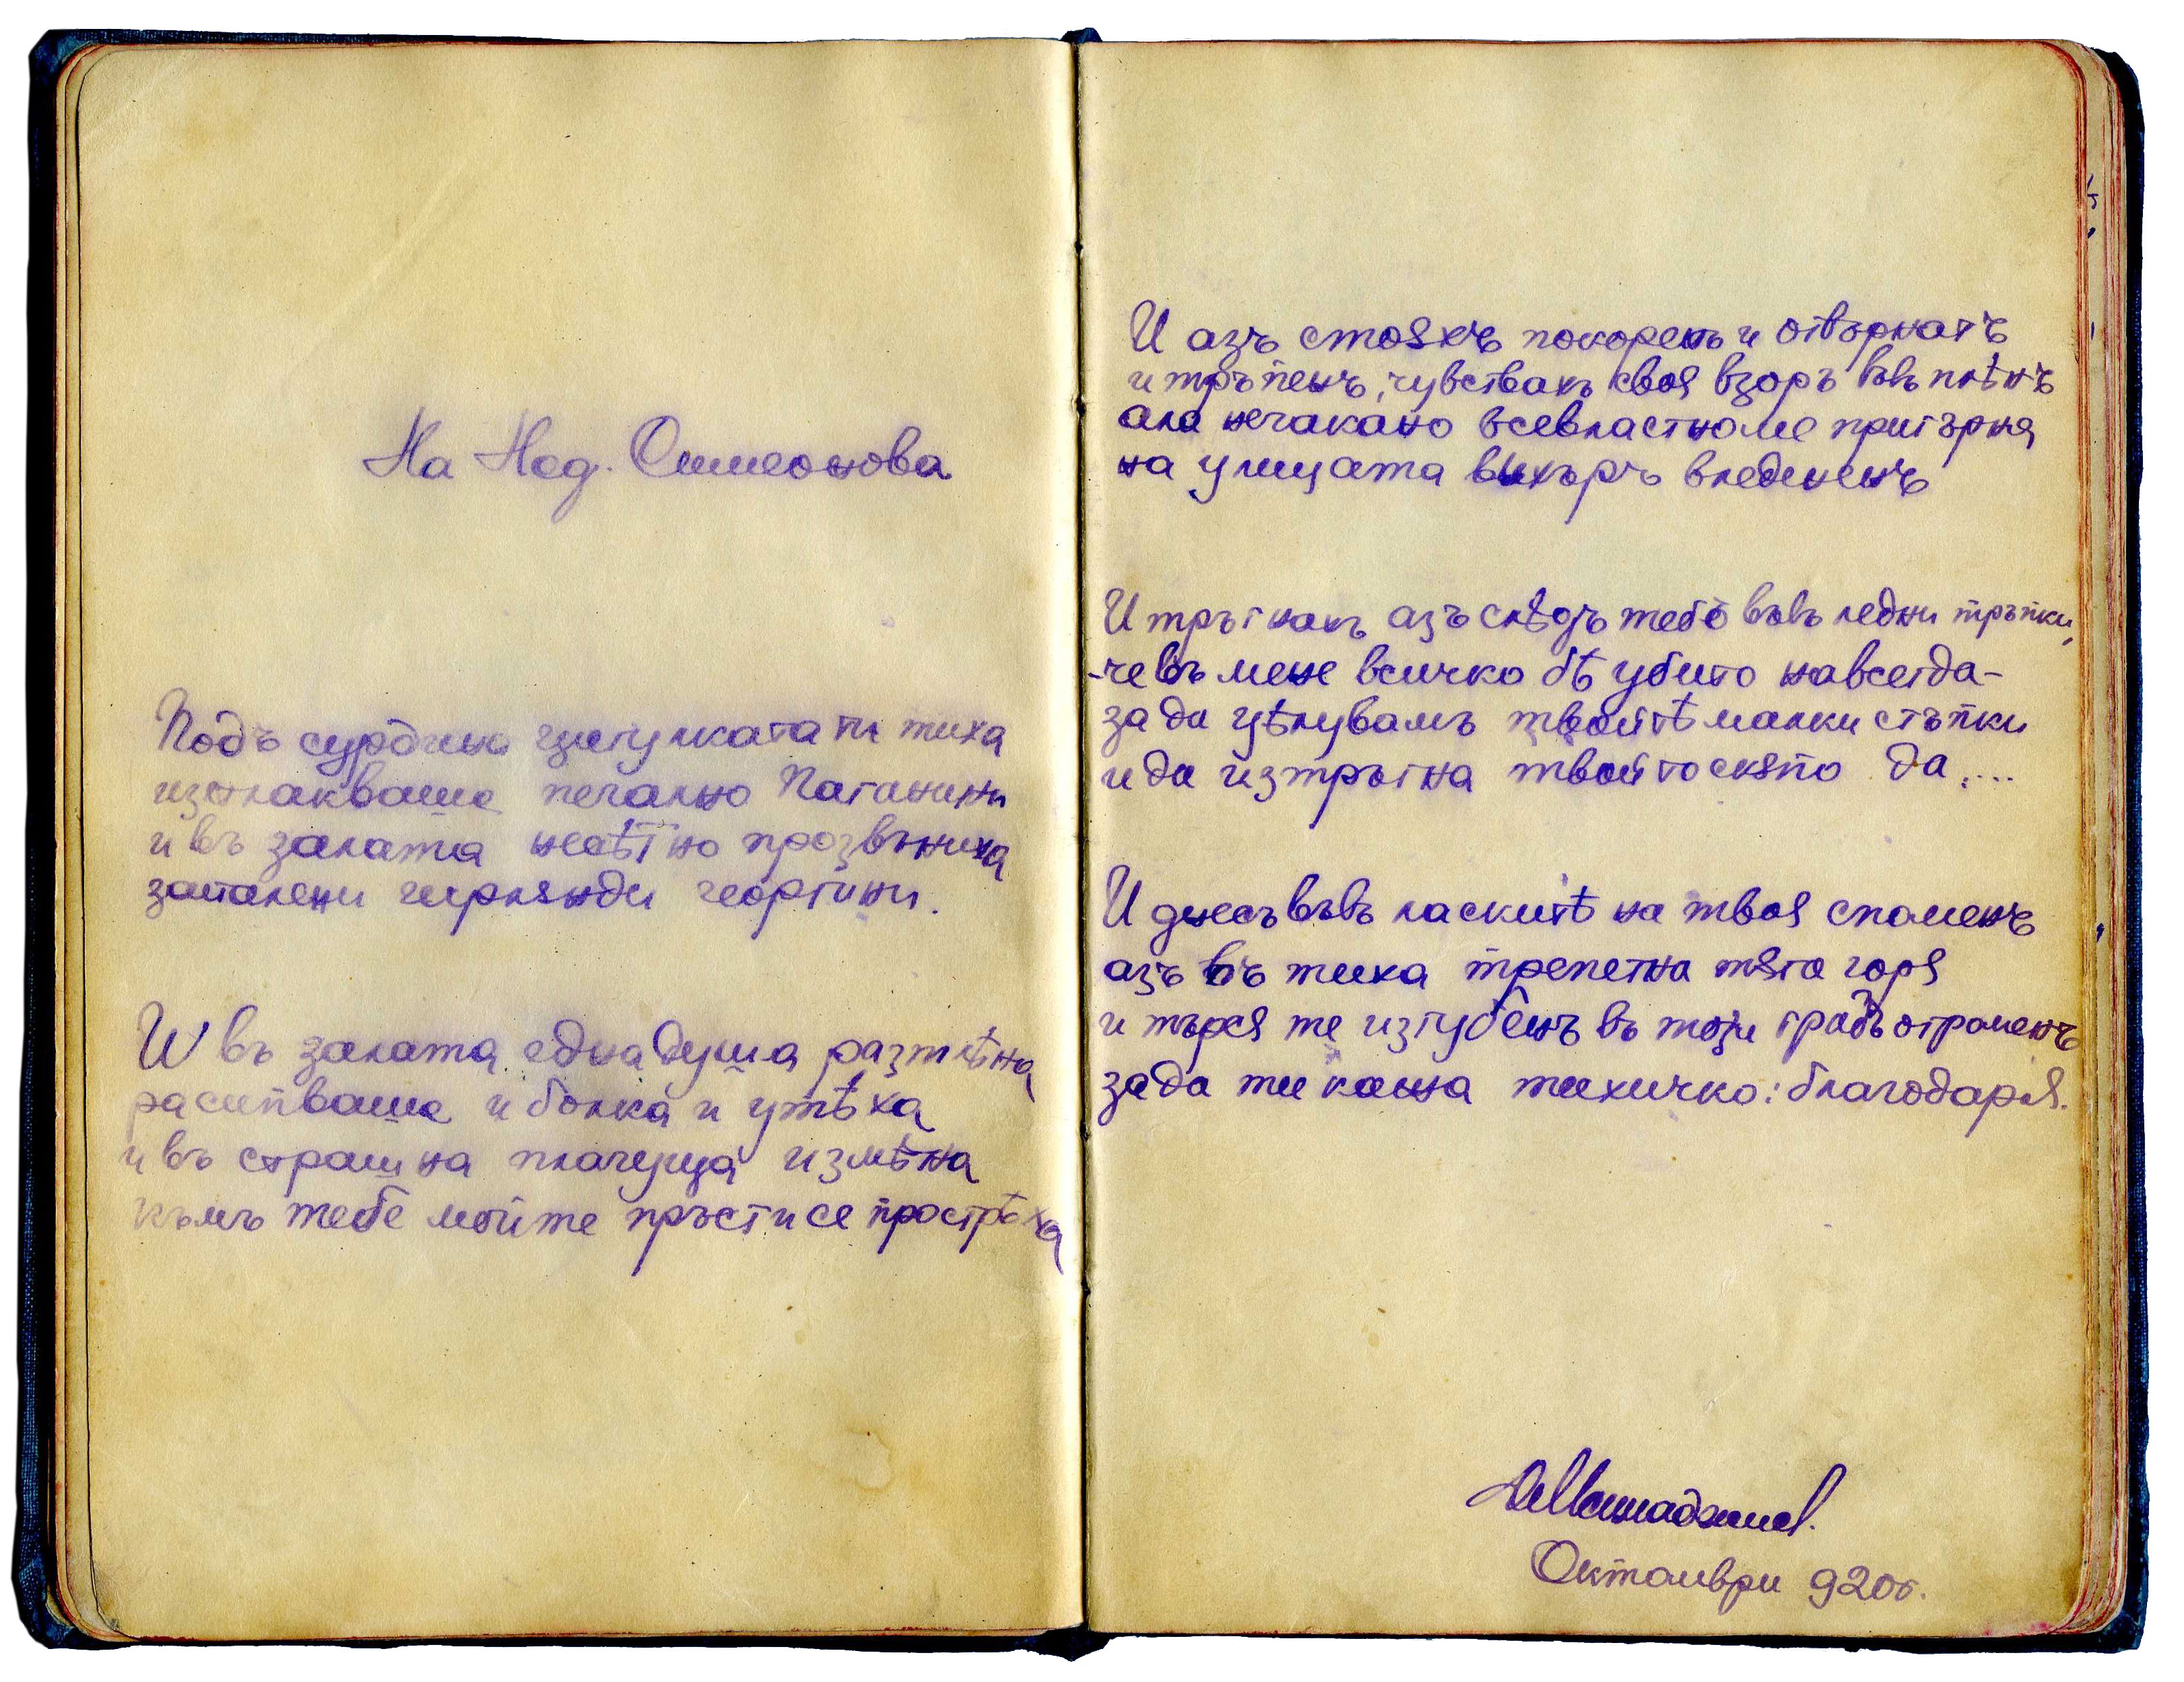 На Над. Симеонова
Подъ сурдина цигулката ти тиха
изплакваше печално Паганини
и въ залата неѣтно прозвъниха
запалени гирлянди георгини.
И въ залата една душа разтлѣна
расипваше и болка и утѣха
и въ страшна плачуща измѣна
къмъ тебе мойте пръсти се простряха
И азъ стояхъ покоренъ и отвърнатъ
и тръпенъ, чувствахъ своя взоръ въвъ плѣнъ
ала нечакано всевластно ме пригърна
на улицата вихъръ вледененъ
И тръгнахъ азъ слѣдъ тебе въвъ ледни тръпки,
-че въ мене всичко бѣ убито навсегда-
за да цѣлувамъ твойтѣ малки стъпки
и да изтръгна твойто скѫпо да....
И днесъ въвъ ласкитѣ на твоя споменъ
азъ въ тиха трепетна тяга горя
и търся те изгубенъ въ този градъ огроменъ
за да ти кажа тихичко: благодаря.
Октомври 920г.